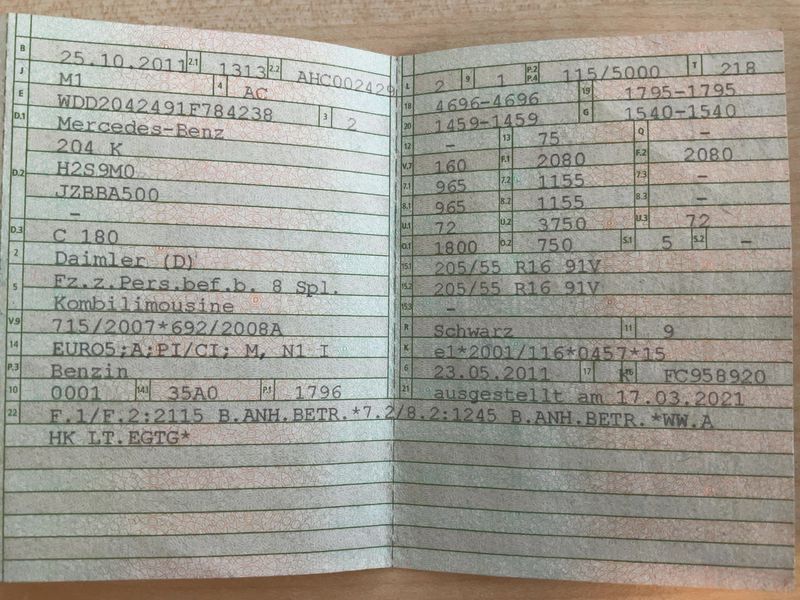 B 25.10.2011 2.1 1313 2.2 AHC002429
J M1 4 AC
E WDD2042491F784238 3 2
D.1 Mercedes-Benz
204 K
D.2 H2S9M0
JZBBA500
–
D.3 C 180
2 Daimler (D)
5 Fz.z.Pers.bef.b. 8 Spl.
Kombilimousine
V.9 715/2007*692/2008A
14 EURO5;A;PI/CI; M, N1 I
P.3 Benzin
10 0001 14.1 35A0 P.1 1796
22 F.1/F.2:2115 B.ANH.BETR.*7.2/8.2:1245 B.ANH.BETR.*WW.A
HK LT.EGTG*
L 2 9 1 P.2 P.4 115/5000 T 218
18 4696-4696 19 1795-1795
20 1459-1459 G 1540-1540
12 – 13 75 Q –
V.7 160 F.1 2080 F.2 2080
7.1 965 7.2 1155 7.3 –
8.1 965 8.2 1155 8.3 –
U.1 72 U.2 3750 U.3 72
O.1 1800 O.2 750 S.1 5 S.2 –
15.1 205/55 R16 91V
15.2 205/55 R16 91V
15.3 –
R Schwarz 11 9
K e1*2001/116*0457*15
6 23.05.2011 17 K 16 FC958920
21 ausgestellt am 17.03.2021